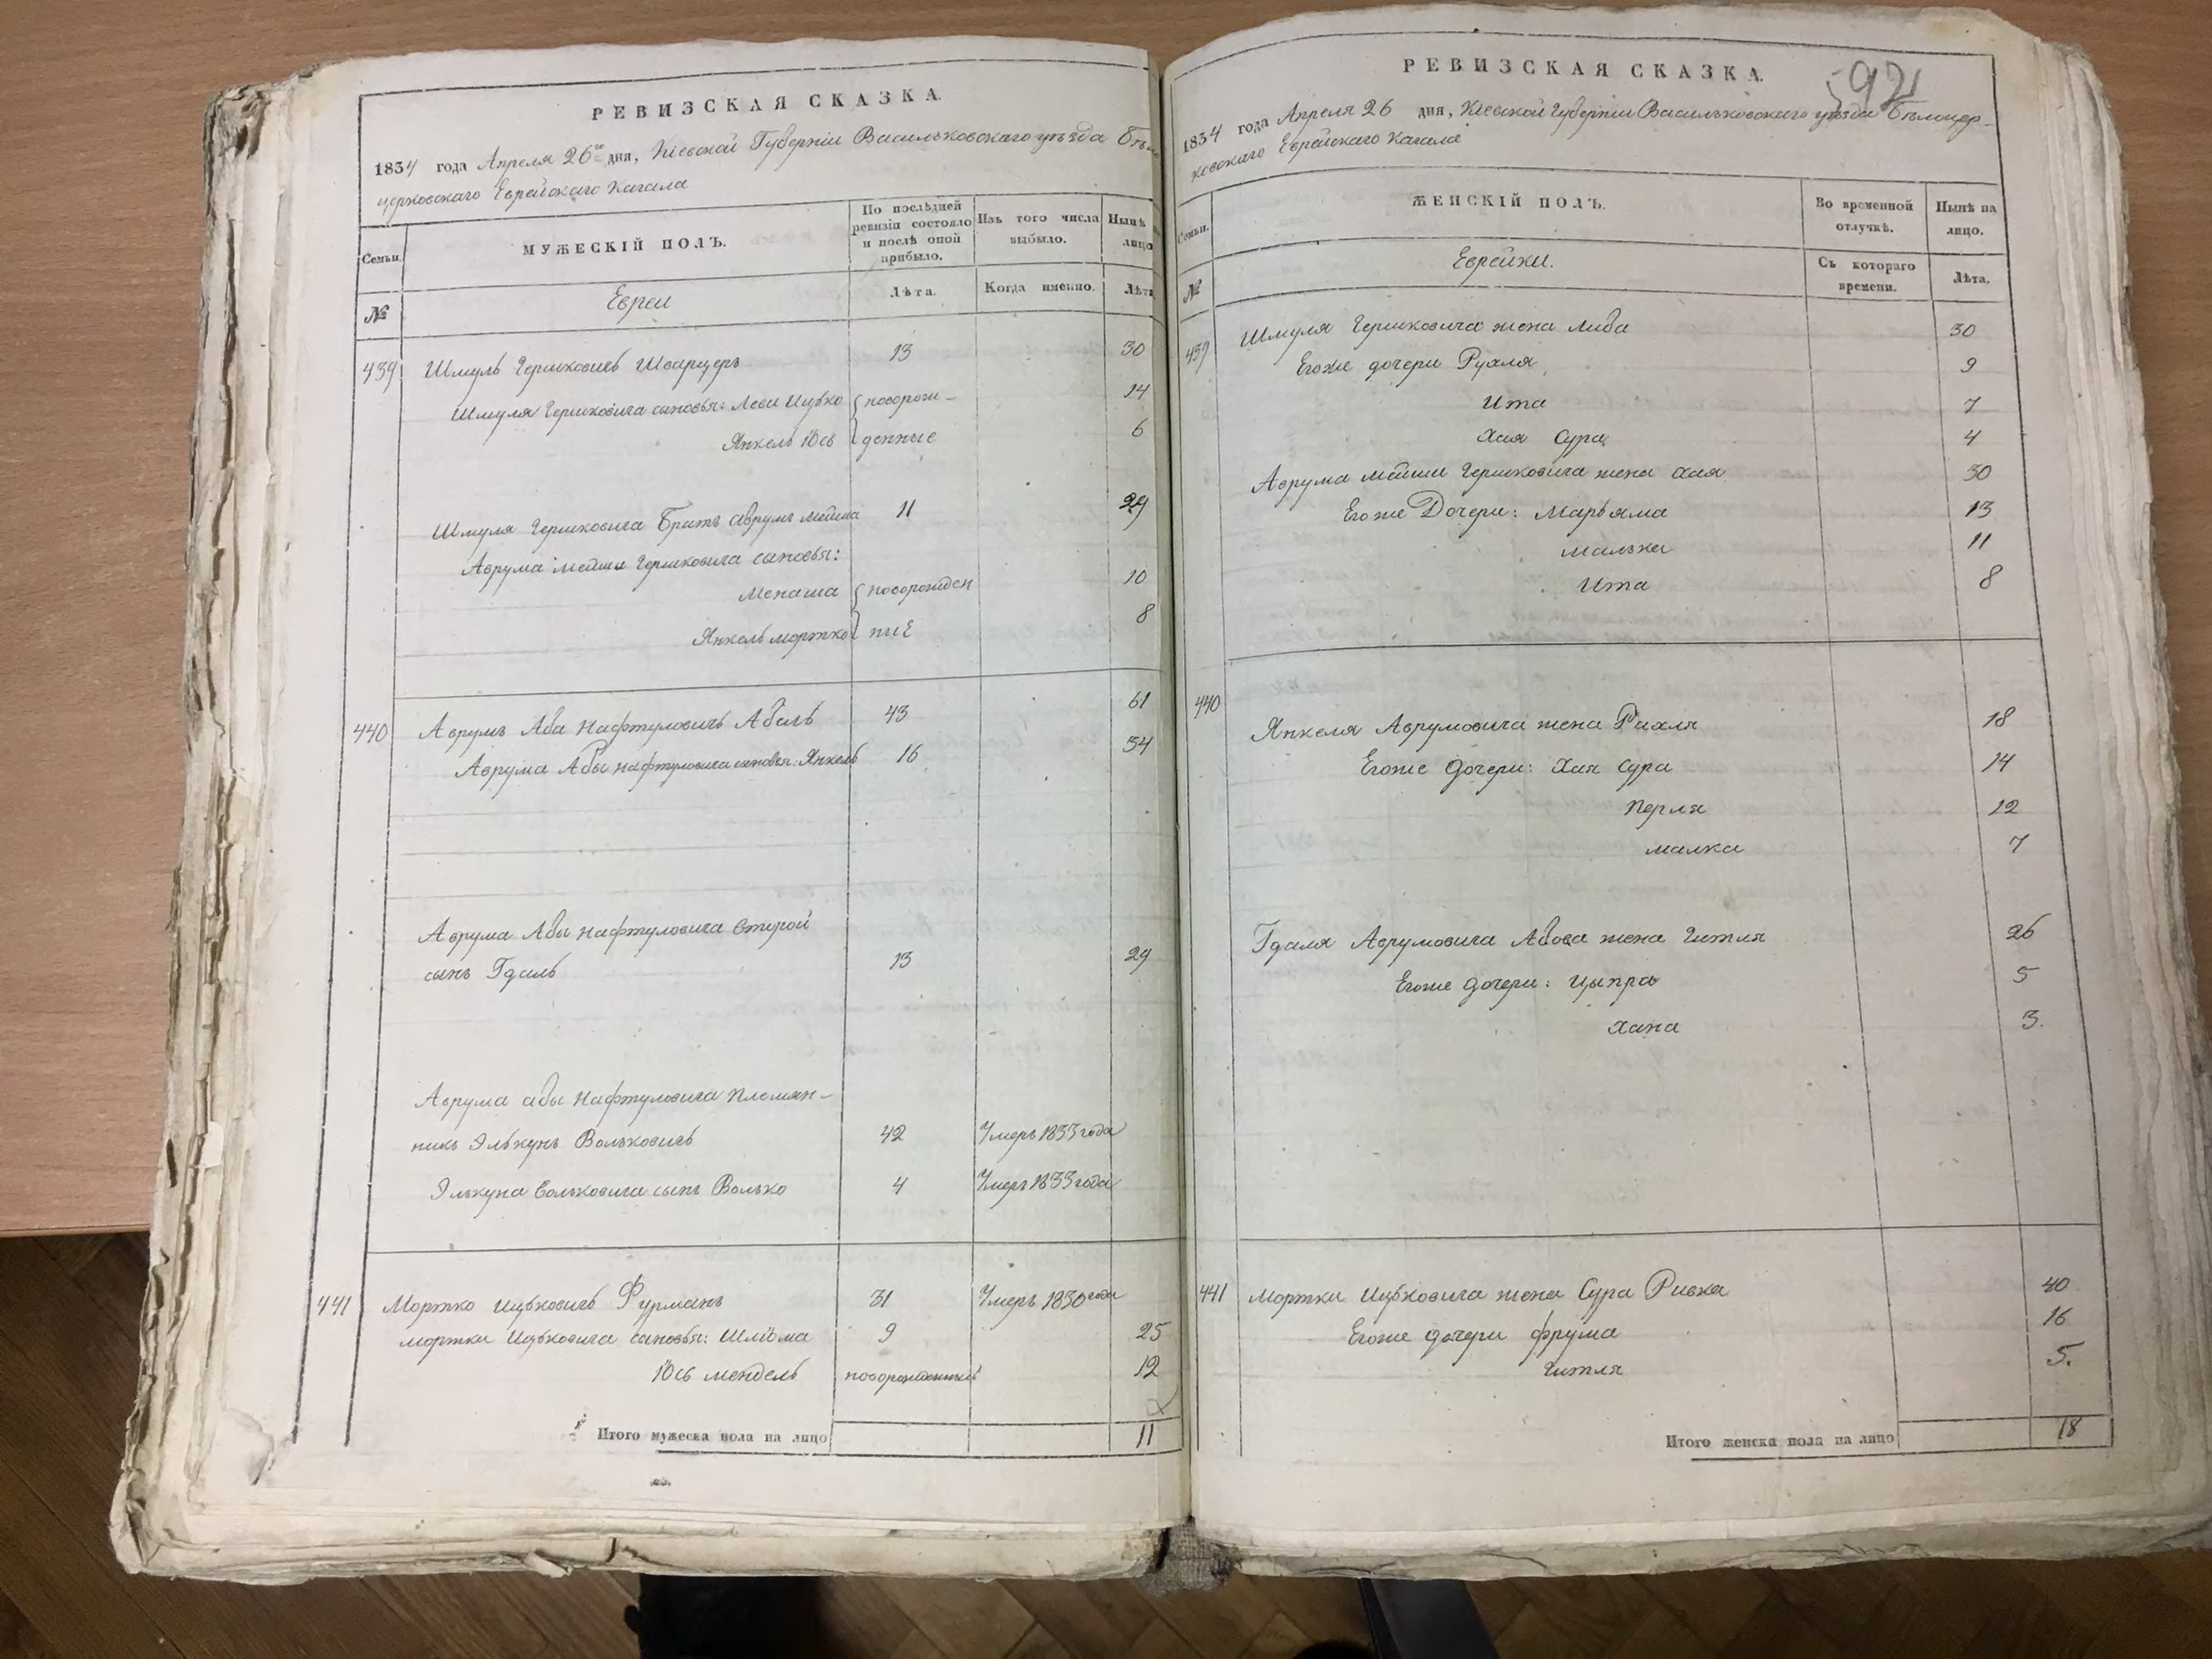 РЕВИЗСКАЯ СКАЗКА.
1834 года Апреля 26го дня, Кіевской Губерніи Васильковскаго уѣзда Бѣло
церковскаго Еврейскаго Кагала
Семьи. МУЖЕСКІЙ ПОЛЪ. По послѣдней ревизіи состояло и послѣ оной прибыло. Изъ того числа выбыло. Нынѣ на лицо
№ Евреи Лѣта. Когда именно. Лѣта
439 Шмуль Гершковичь Шварцеръ 13 30
Шмуля Гершковича сыновья: Леви Ицько новорож- 14
Янкель Юсь денные 6
Шмуля Гершковича Братъ Аврумъ Мойша 11 29
Аврума Мойши Гершковича сыновья:
Менаша новорожден 10
Янкель Мортко ные 8
440 Аврумъ Аба Нафтуловичь Абель 43 61
Аврума Абы Нафтуловича сыновья: Янкель 16 34
Аврума Абы Нафтуловича второй
сынъ Гдаль 13 29
Аврума Абы Нафтуловича Племян-
никъ Элькунъ Вольковичь 42 Умеръ 1833 года
Элькуна Вольковича сынъ Волько 4 Умеръ 1833 года
441 Мортко Ицьковичь Фурманъ 31 Умеръ 1830 года
Мортки Ицьковича сыновья: Шліома 9 25
Юсь Мендель новорожденный 12
Итого мужеска пола на лицо 11
РЕВИЗСКАЯ СКАЗКА.
592
1834 года Апреля 26 дня, Кіевской Губерніи Васильковскаго уѣзда Бѣлоцер-
ковскаго Еврейскаго Кагала
Семьи. ЖЕНСКІЙ ПОЛЪ. Во временной отлучкѣ. Нынѣ на лицо.
№ Еврейки. Съ котораго времени. Лѣта.
439 Шмуля Гершковича жена Либа 30
Егоже дочери Рухля 9
Ита 7
Хая Сура 4
Аврума Мойши Гершковича жена Хая 30
Егоже Дочери: Марьяма 13
Малька 11
Ита 8
440 Янкеля Аврумовича жена Рахля 18
Егоже дочери: Хая Сура 14
Перля 12
Малка 7
Гдаля Аврумовича Абова жена Гитля 26
Егоже дочери: Цыпра 5
Хана 3.
441 Мортки Ицьковича жена Сура Ривка 40
Егоже дочери Фрума 16
Гитля 5.
Итого женска пола на лицо 18